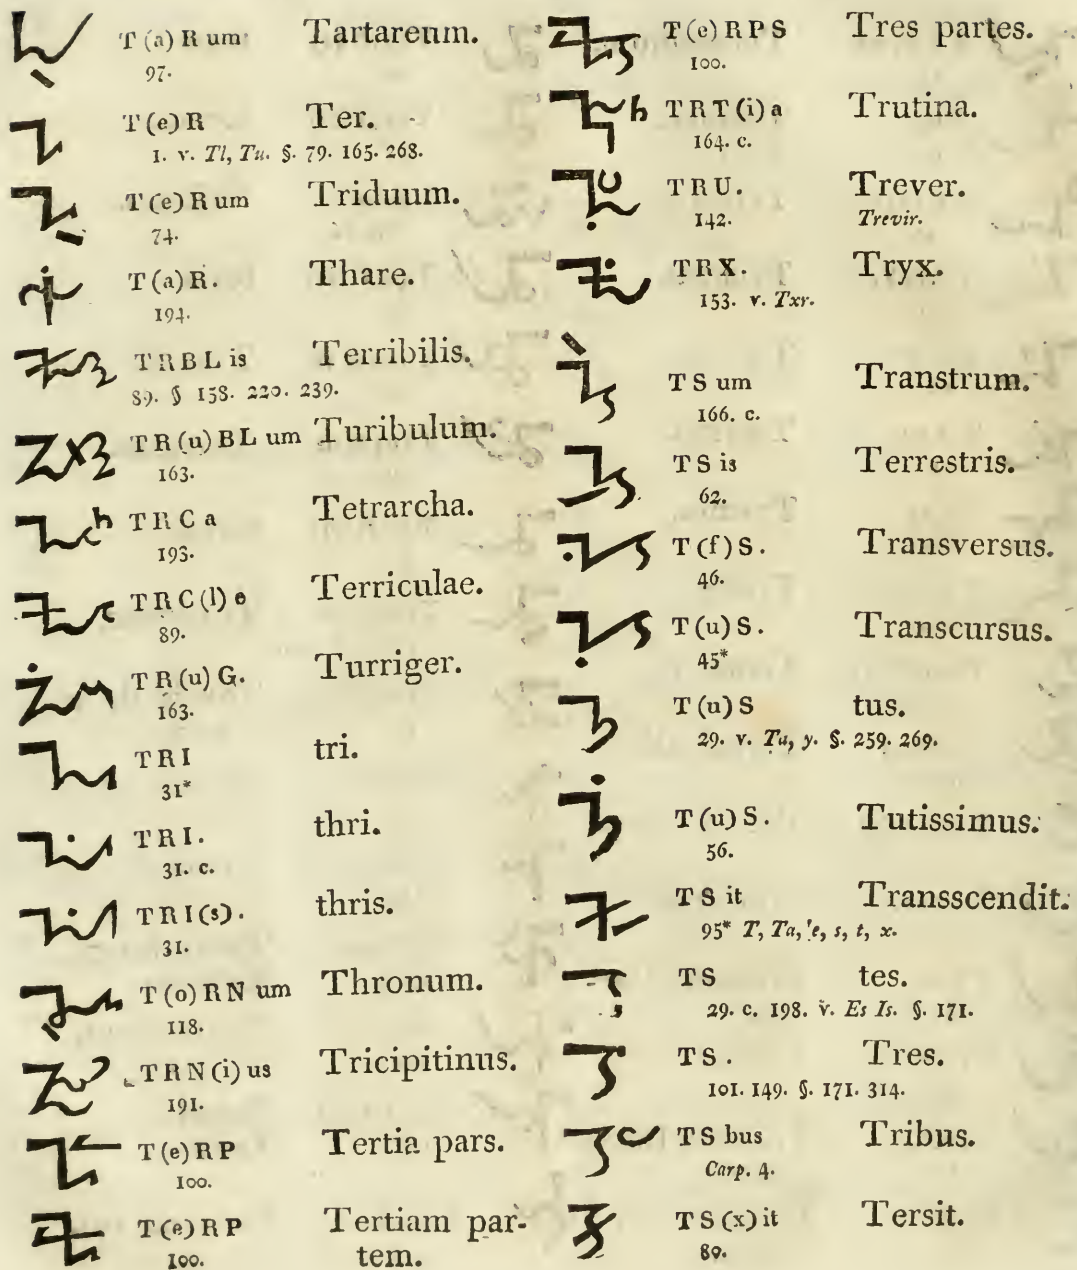 T (a) R um Tartareum.
97.
T (e) R Ter.
1. v. Tl, Tu. §. 79. 165. 268.
T (e) R um Triduum.
74.
T (a) R. Thare.
194.
T R B L is Terribilis.
89. § 158. 220. 239.
T R (u) B L um Turibulum.
163.
T R C a Tetrarcha.
193.
T R C (l) e Terriculae.
89.
T R (u) G. Turriger.
163.
T R I tri.
31*
T R I. thri.
31. c.
T R I (s). thris.
31.
T (o) R N um Thronum.
118.
T R N (i) us Tricipitinus.
191.
T (e) R P Tertia pars.
100.
T (e) R P Tertiam par-
100. tem.
T (e) R P S Tres partes.
100.
T R T (i) a Trutina.
164. c.
T R U. Trever.
142. Trevir.
T R X. Tryx.
153. v. Txr.
T S um Transtrum.
166. c.
T S is Terrestris.
62.
T (f) S. Transversus.
46.
T (u) S. Transcursus.
45*
T (u) S tus.
29. v. Tu, y. §. 259. 269.
T (u) S. Tutissimus.
56.
T S it Transscendit.
95* T, Ta, e, s, t, x.
T S tes.
29. c. 198. v. Es Is. §. 171.
T S. Tres.
101. 149. §. 171. 314.
T S bus Tribus.
Carp. 4.
T S (x) it Tersit.
89.